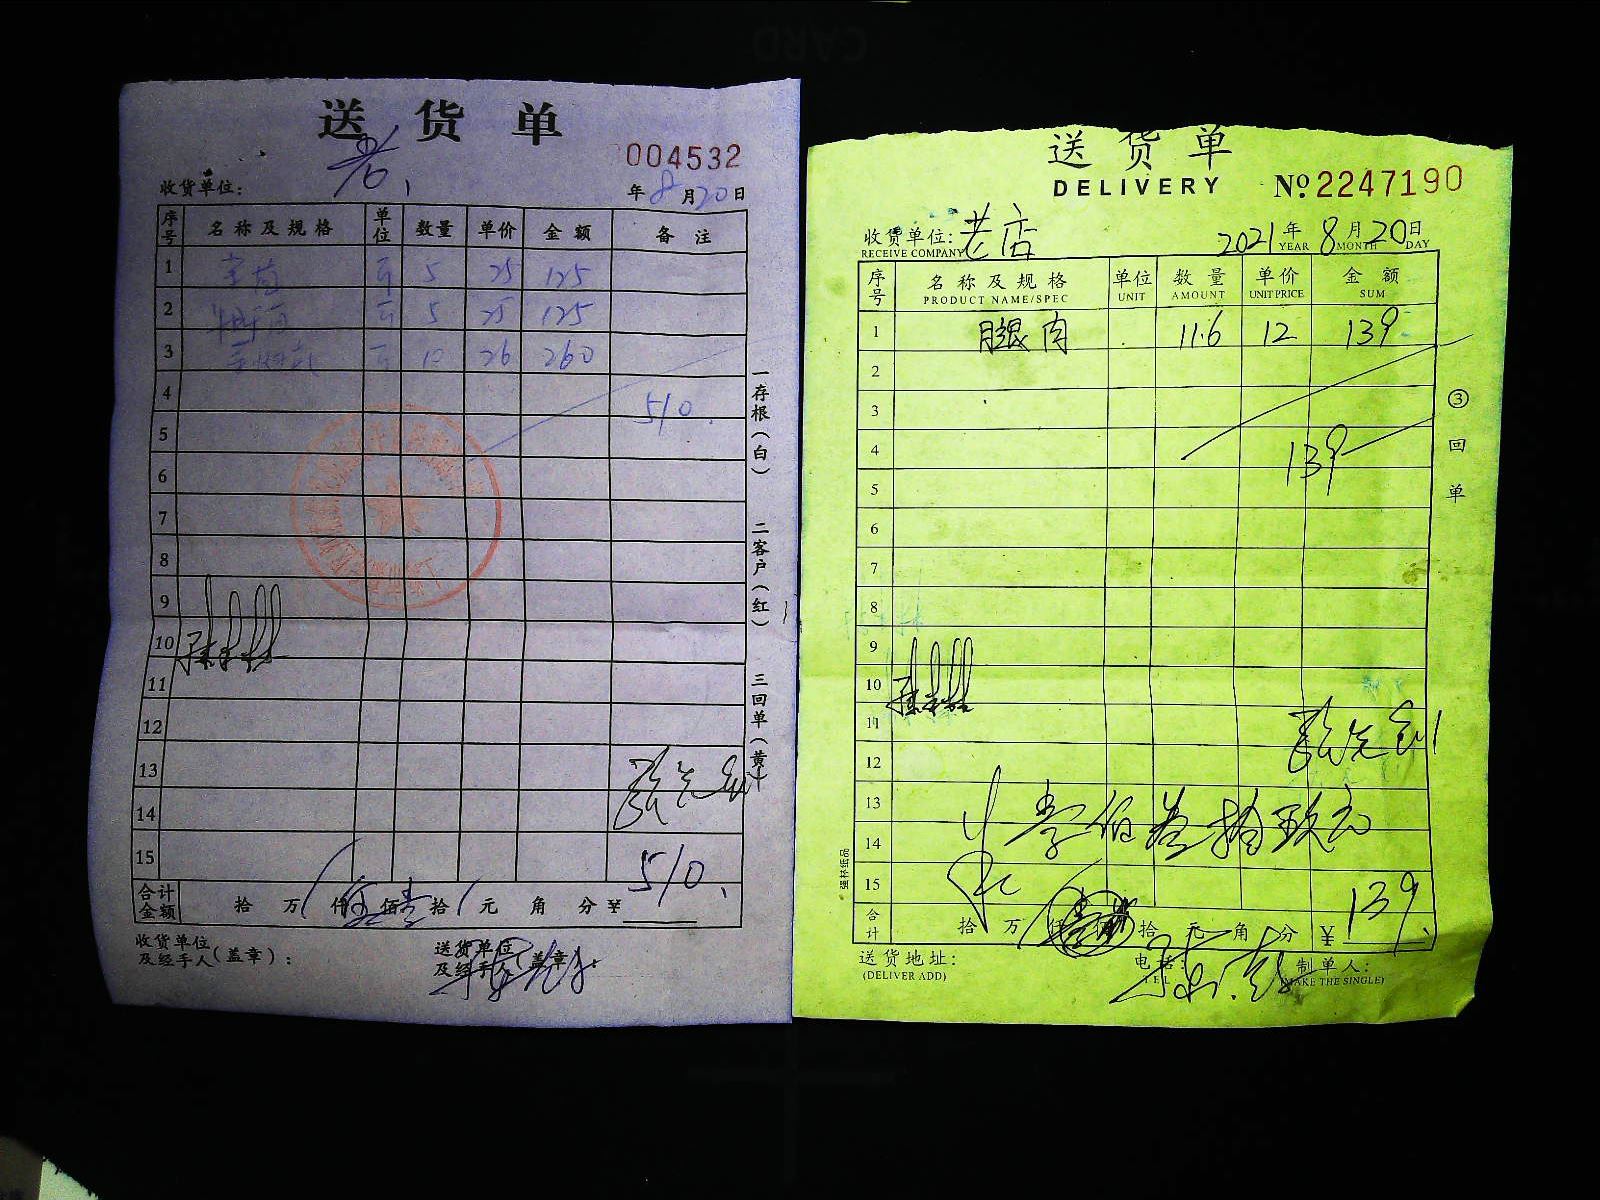 CARD
送货单
004532
老
收货单位:
年 8 月 20 日
序号 名称及规格 单位 数量 单价 金额 备注
1 5 25 125
2 5 25 125
3 10 26 260
4 510
5
6
7
8
9
10
11
12
13
14
15 510
合计金额 拾 万 仟 伍 佰 壹 拾 元 角 分 ¥
收货单位及经手人(盖章):
送货单位及经手人(盖章):
一存根(白) 二客户(红) 三回单(黄)
送货单
DELIVERY № 2247190
收货单位: 老店 2021 年 8 月 20 日
RECEIVE COMPANY YEAR MONTH DAY
序号 名称及规格 单位 数量 单价 金额
PRODUCT NAME/SPEC UNIT AMOUNT UNIT PRICE SUM
1 腿肉 11.6 12 139
2
3
4 139
5
6
7
8
9
10
11
12
13
14 壹佰叁拾玖元
15 139
合计 拾 万 仟 佰 拾 元 角 分 ¥
送货地址: 电话: 制单人:
(DELIVER ADD) TEL (MAKE THE SINGLE)
③回单
强林纸品